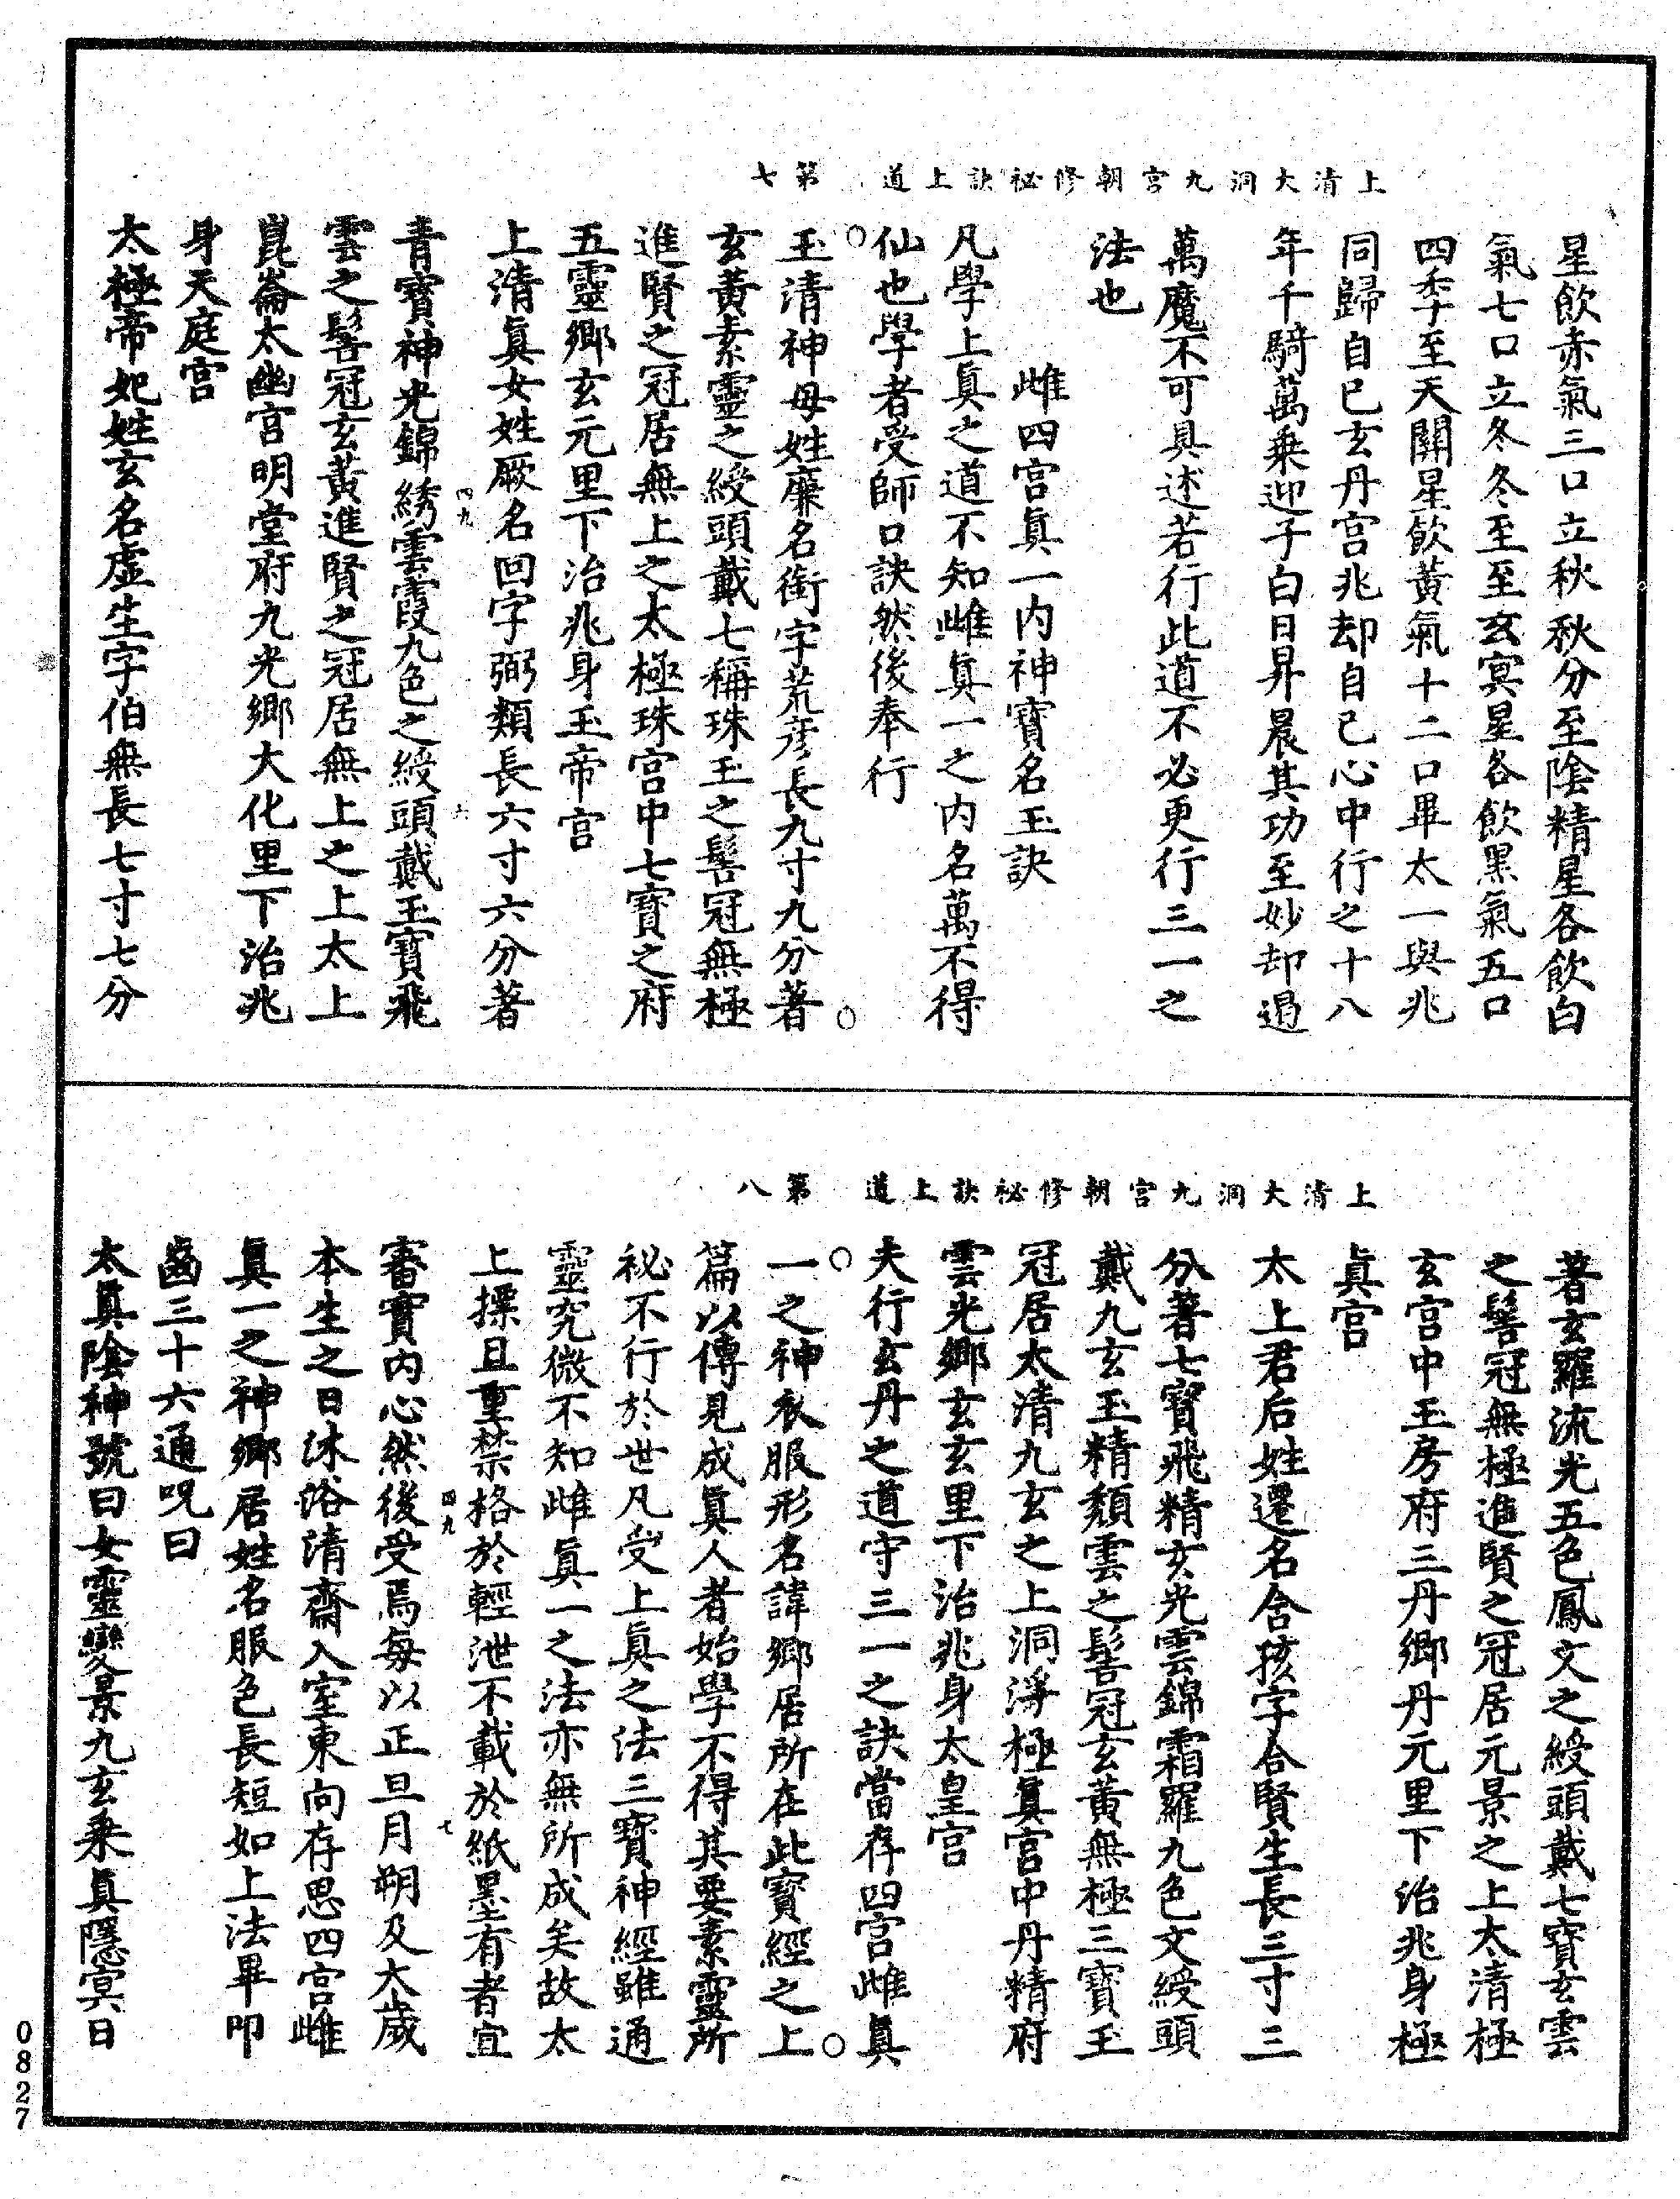 上清大洞九宮朝修祕訣上道　第七
星飲赤氣三口立秋秋分至陰精星各飲白
氣七口立冬冬至至玄冥星各飲黑氣五口
四季至天關星飲黃氣十二口畢太一與兆
同歸自己玄丹宮兆却自己心中行之十八
年千騎萬乘迎子白日昇晨其功至妙却過
萬魔不可具述若行此道不必更行三一之
法也
雌四宮眞一內神寶名玉訣
凡學上眞之道不知雌眞一之內名萬不得
仙也學者受師口訣然後奉行
玉清神母姓廉名銜字荒彦長九寸九分著
玄黃素靈之綬頭戴七稱珠玉之髻冠無極
進賢之冠居無上之太極珠宮中七寶之府
五靈鄉玄元里下治兆身玉帝宮
上清眞女姓厥名回字粥類長六寸六分著
四九　六
青寶神光錦綉雲霞九色之綬頭戴玉寶飛
雲之髻冠玄黃進賢之冠居無上之上太上
崑崙太幽宮明堂府九光鄉大化里下治兆
身天庭宮
太極帝妃姓玄名虛生字伯無長七寸七分
上清大洞九宮朝修祕訣上道　第八
著玄羅流光五色鳳文之綬頭戴七寶玄雲
之髻冠無極進賢之冠居元景之上太清極
玄宮中玉房府三丹鄉丹元里下治兆身極
眞宮
太上君后姓遷名含孩字合賢生長三寸三
分著七寶飛精玄光雲錦霜羅九色文綬頭
戴九玄玉精頹雲之髻冠玄黃無極三寶玉
冠居太清九玄之上洞淨極眞宮中丹精府
雲光鄉玄玄里下治兆身太皇宮
夫行玄丹之道守三一之訣當存四宮雌眞
一之神衣服形名諱鄉居所在此寶經之上
篇以傳見成眞人者始學不得其要素靈所
祕不行於世凡受上眞之法三寶神經雖通
靈究微不知雌眞一之法亦無所成矣故太
上摽且重禁格於輕泄不載於紙墨有者宜
四九　七
審實內心然後受焉每以正旦月朔及大歲
本生之日沐浴清齋入室東向存思四宮雌
眞一之神鄉居姓名服色長短如上法畢叩
齒三十六通呪曰
太眞陰神號曰女靈變景九玄乘眞隱冥日
0827